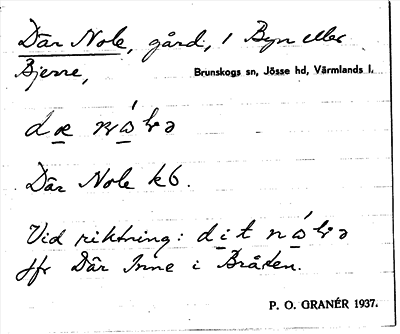 Där Nole, gård, i Byn eller
Bjerre,
Brunskogs sn, Jösse hd, Värmlands l.
Där Nole kb.
Vid riktning: dit
jfr Där Inne i Bråten.
P. O. GRANÉR 1937.